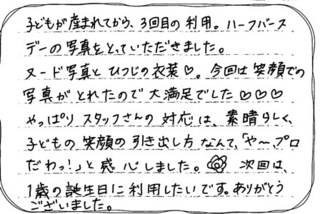 子どもが産まれてから、3回目の利用。ハーフバース
デーの写真をとっていただきました。
ヌード写真とひつじの衣装♡。今回は笑顔での
写真がとれたので大満足でした♡♡♡
やっぱりスタッフさんの対応は、素晴らしく、
子どもの笑顔の引き出し方なんて、「や〜プロ
だわっ!」と感心しました。次回は、
1歳の誕生日に利用したいです。ありがとう
ございました。